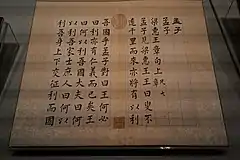 孟子
孟子
梁惠王章句上 凡七
孟子見梁惠王王曰叟不
遠千里而來亦將有以利
吾國乎孟子對曰王何必
曰利亦有仁義而已矣王
曰何以利吾國大夫曰何
以利吾家士庶人曰何以
利吾身上下交征利而國